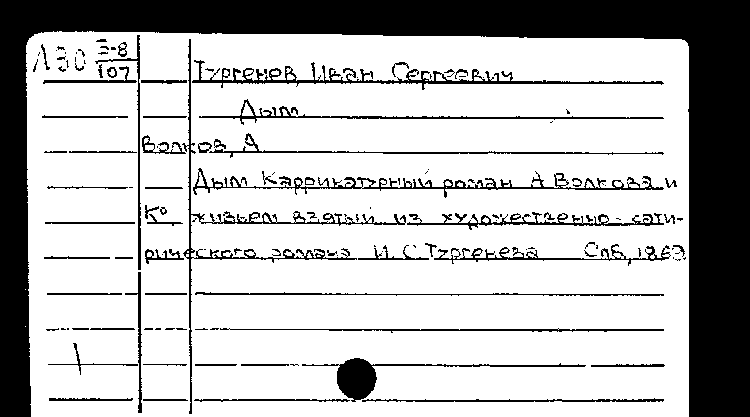 Л30 З-8/107
Тургенев, Иван Сергеевич
Дым.
Волков, А
Дым. Каррикатурный роман А Волкова и
К°. живьем взятый из художественно-сати-
рического романа И.С.Тургенева Спб, 1869